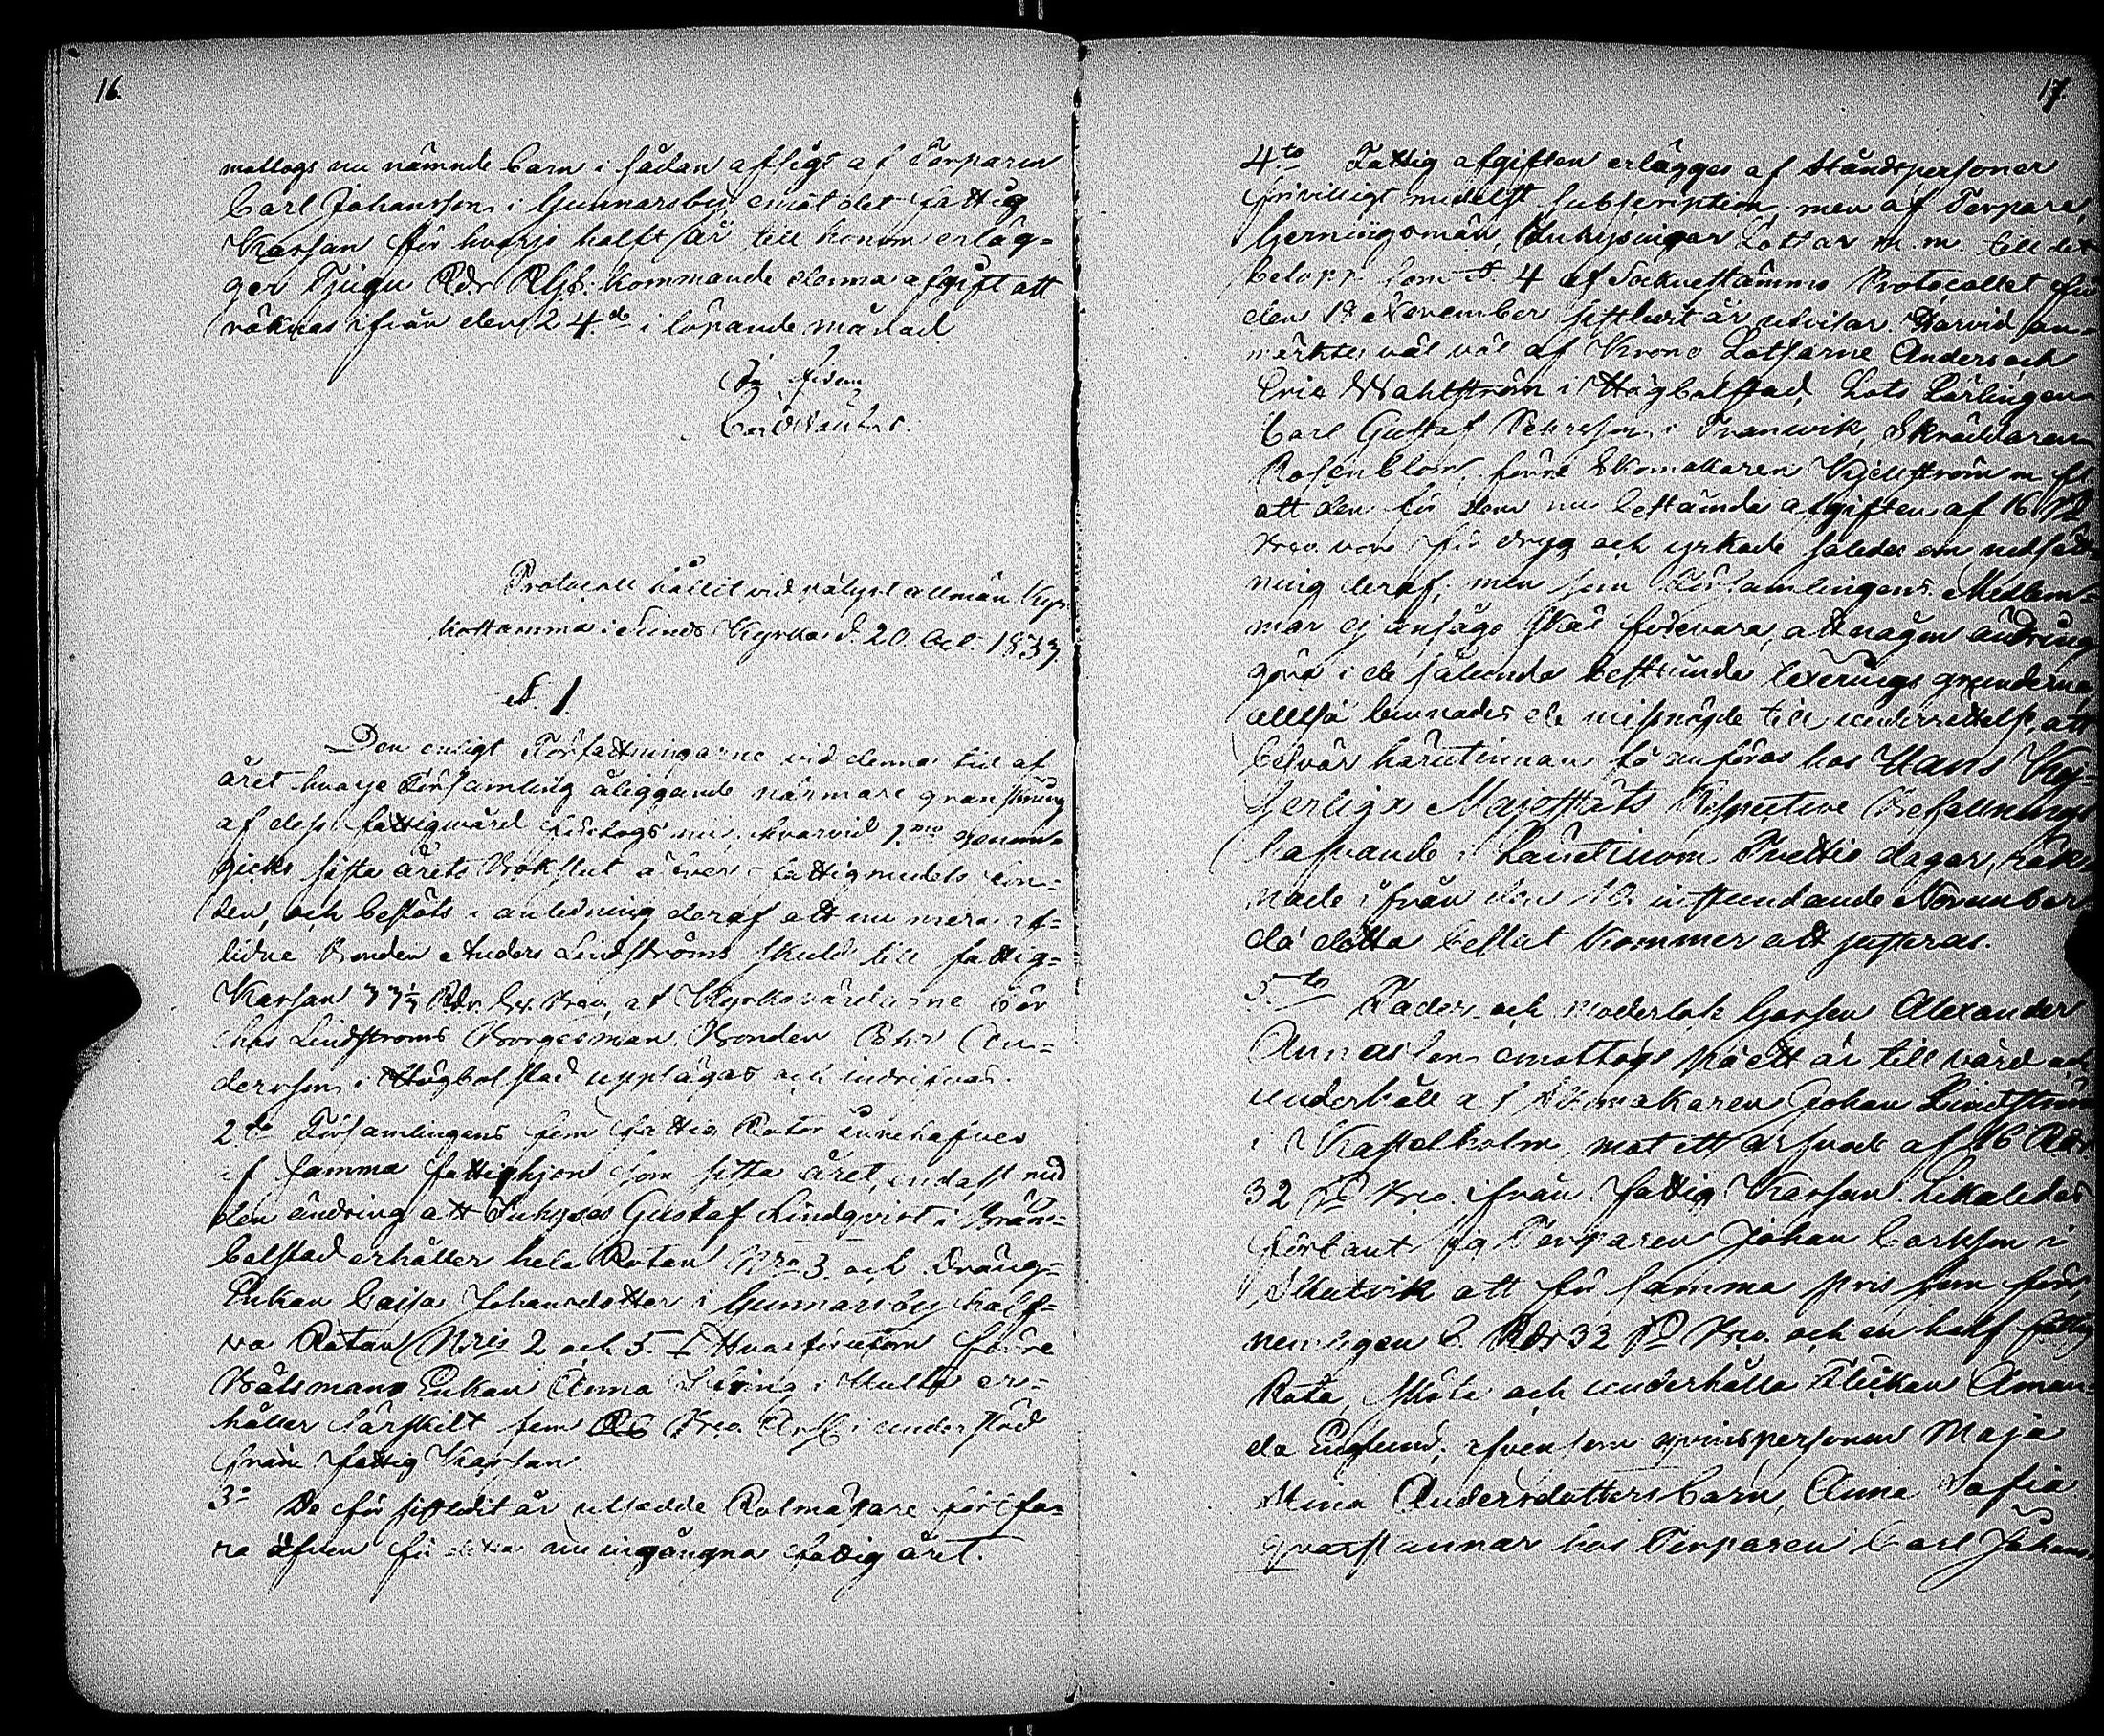 16.
mottogs nu nämnde barn i sådan afsigt af Torparen
Carl Johansson i Gunnarsby, emot det fattig
Kassan för hvarje halft år till honom erläg-
ger Tjugu Rdr Rgs. kommande denna afgift att
räknas ifrån den 24.de i löpande månad.
In fidem
Protocoll hållit vid pålyst allmän Kyr-
kostämma i Sunds Kyrka d. 20. Oct. 1833.
§. 1.
Den enligt Författningarne vid denna tid af
året hvarje Församling åliggande närmare granskning
af dess fattigvård företogs nu, hvarvid 1.mo genom-
gicks sista årets Bokslut öfver fattigmedels fon-
den, och beslöts i anledning deraf att nu mera af-
lidne Bonden Anders Lindströms skuld till fattig-
Kassan Rdr. Bco, af Kyrkovärdarne bör
hos Lindströms Borgesman Bonden Anders-
dersson i Högbolstad uppsägas och indrifvas.
2.do Församlingens fem fattig Rotar innehafves
af samma fattighjon som sista året, endast med
den ändring att Inhyses Gustaf Lindqvist i Bräns-
bolstad erhåller hela Rotan Nro 3. och Dräng-
Enkan Caisa Johansdotter i Gunnarsby half-
va Rotan Nris 2 och 5. Hvarförutom förre
Båtsmans Enkan Anna i Hulta er-
håller särskilt fem Rd Bco. Ars i understöd
från fattig Kassan.
3:o De för sistledit år utsedde Rotmästare fortfa-
ra äfven för detta nu ingångna fattig året.
17.
4.to Fattig afgiften erlägges af Ståndspersoner
frivilligt medelst subscription, men af Torpare,
Gerningsmän, Inhysingar Lotsar m. m. till det
belopp som §. 4 af Sockenstämmo Protocollet för
den November sistledit år utvisar. Härvid an-
märktes väl af Krono Lotsarne Anders och
Eric Wahlström i Högbolstad, Lots Lärlingen
Carl Gustaf Petersson i Tranvik, Skräddaren
Rosenblom, förre Skomakaren Kjellström m. fl.
att den för dem nu bestämda afgiften af 16 sk
Bco. vore för dryg och yrkade således om nedsätt-
ning deraf; men som Församlingens Medlem-
mar ej ansågo skäl förevara, att någon ändring
göra i de sålunda bestämda taxerings grunderna,
alltså lemnades de missnöjde till underrättelse, att
besvär häruti innan få anföras hos Hans Key-
serliga Majestäts Respective Befallnings
hafvande i Länet inom Trettio dagar, räk-
nade ifrån den 10. instundande November
då detta beslut kommer att justeras.
5.to Fader- och moderlöse Gossen Alexander
Annasson emottogs på ett år till vård och
underhåll af Skomakaren Johan Lindström
i Kastelholm, mot ett arfvode af 16 Rdr
32 sk Bco. ifrån fattig Kassan. Likaledes
förbant sig Torparen Johan Carlsson i
Skutvik att för samma pris som förr,
nemligen 8. Rdr 32 sk Bco. och en half fattig
Rota, sköta och underhålla Flickan Aman-
da Englund; äfven som qvinspersonen Maja
Stina Andersdotters barn, Anna Sofia
qvarstannar hos Torparen Carl Johans-